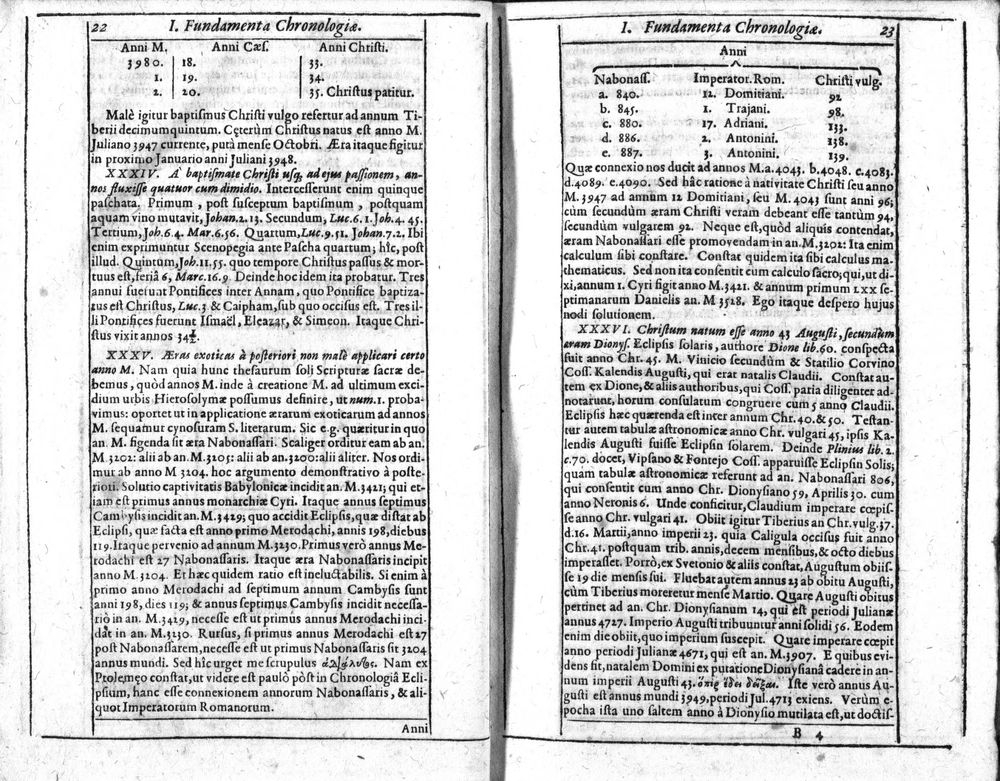 22 I. Fundamenta Chronologiæ.
Anni M. Anni Cæs. Anni Christi.
3980. 18. 33.
1. 19. 34.
2. 20. 35. Christus patitur.
Malè igitur baptismus Christi vulgo refertur ad annum Ti-
berii decimum quintum. Cęterùm Christus natus est anno M.
Juliano 3947 currente, putà mense Octobri. Æra itaque figitur
in proximo Januario anni Juliani 3948.
XXXIV. A baptismate Christi usq, ad ejus passionem, an-
nos fluxisse quatuor cum dimidio. Intercesserunt enim quinque
paschata. Primum, post susceptum baptismum, postquam
aquam vino mutavit, Johan. 2. 13. Secundum, Luc. 6. 1. Joh. 4. 45.
Tertium, Joh. 6. 4. Mar. 6. 56. Quartum, Luc. 9. 51. Johan. 7. 2. Ibi
enim exprimuntur Scenopegia ante Pascha quartum; hîc, post
illud. Quintum, Joh. 11. 55. quo tempore Christus passus & mor-
tuus est, feriâ 6, Marc. 16. 9 Deinde hoc idem ita probatur. Tres
annui fuerunt Pontifices inter Annam, quo Pontifice baptiza-
tus est Christus, Luc. 3 & Caipham, sub quo occisus est. Tres il-
li Pontifices fuerunt Ismaël, Eleazar, & Simeon. Itaque Chri-
stus vixit annos 34½.
XXXV. Æras exoticas à posteriori non malè applicari certo
anno M. Nam quia hunc thesaurum soli Scripturæ sacræ de-
bemus, quòd annos M. inde à creatione M. ad ultimum exci-
dium urbis Hierosolymæ possumus definire, ut num. 1. proba-
vimus: oportet ut in applicatione ærarum exoticarum ad annos
M. sequamur cynosuram S. literarum. Sic e.g. quæritur in quo
an. M. figenda sit æra Nabonassari. Scaliger orditur eam ab an.
M. 3202: alii ab an. M. 3205: alii ab an. 3200: alii aliter. Nos ordi-
mur ab anno M 3204. hoc argumento demonstrativo à poste-
riori. Solutio captivitatis Babylonicæ incidit an. M. 3421; qui et-
iam est primus annus monarchiæ Cyri. Itaque annus septimus
Cambysis incidit an. M. 3429; quo accidit Eclipsis, quæ distat ab
Eclipsi, quæ facta est anno primo Merodachi, annis 198, diebus
119. Itaque pervenio ad annum M. 3230. Primus verò annus Me-
rodachi est 27 Nabonassaris. Itaque æra Nabonassaris incipit
anno M. 3204. Et hæc quidem ratio est ineluctabilis. Si enim à
primo anno Merodachi ad septimum annum Cambysis sunt
anni 198, dies 119; & annus septimus Cambysis incidit necessa-
riò in an. M. 3429, necesse est ut primus annus Merodachi inci-
dat in an. M. 3230. Rursus, si primus annus Merodachi est 27
post Nabonassarem, necesse est ut primus Nabonassaris sit 3204
annus mundi. Sed hîc urget me scrupulus Nam ex
Ptolemęo constat, ut videre est paulò pòst in Chronologiâ Ecli-
psium, hanc esse connexionem annorum Nabonassaris, & ali-
quot Imperatorum Romanorum.
Anni
I. Fundamenta Chronologiæ. 23
Anni
Nabonass. Imperator. Rom. Christi vulg.
a. 840. 12. Domitiani. 92
b. 845. 1. Trajani. 98.
c. 880. 17. Adriani. 133.
d. 886. 2. Antonini. 138.
e. 887. 3. Antonini. 139.
Quæ connexio nos ducit ad annos M. a. 4043. b. 4048. c. 4083.
d. 4089. e. 4090. Sed hîc ratione à nativitate Christi seu anno
M. 3947 ad annum 12 Domitiani, seu M. 4043 sunt anni 96;
cùm secundùm æram Christi veram debeant esse tantùm 94,
secundùm vulgarem 92. Neque est, quòd aliquis contendat,
æram Nabonassari esse promovendam in an. M. 3202: Ita enim
calculum sibi constare. Constat quidem ita sibi calculus ma-
thematicus. Sed non ita consentit cum calculo sacro; qui, ut di-
xi, annum 1. Cyri figit anno M. 3421. & annum primum LXX se-
ptimanarum Danielis an. M 3528. Ego itaque despero hujus
nodi solutionem.
XXXVI. Christum natum esse anno 43 Augusti, secundùm
æram Dionys. Eclipsis solaris, authore Dione lib. 60. conspecta
fuit anno Chr. 45. M. Vinicio secundùm & Statilio Corvino
Coss. Kalendis Augusti, qui erat natalis Claudii. Constat au-
tem ex Dione, & aliis authoribus, qui Coss. paria diligenter ad-
notarunt, horum consulatum congruere cum 5 anno Claudii.
Eclipsis hæc quærenda est inter annum Chr. 40. & 50. Testan-
tur autem tabulæ astronomicæ anno Chr. vulgari 45, ipsis Ka-
lendis Augusti fuisse Eclipsin solarem. Deinde Plinius lib. 2.
c. 70. docet, Vipsano & Fontejo Coss. apparuisse Eclipsin Solis;
quam tabulæ astronomicæ referunt ad an. Nabonassari 806,
qui consentit cum anno Chr. Dionysiano 59, Aprilis 30. cum
anno Neronis 6. Unde conficitur, Claudium imperare cœpis-
se anno Chr. vulgari 41. Obiit igitur Tiberius an Chr. vulg. 37.
d. 16. Martii, anno imperii 23. quia Caligula occisus fuit anno
Chr. 41. postquam trib. annis, decem mensibus, & octo diebus
imperasset. Porrò, ex Svetonio & aliis constat, Augustum obiis-
se 19 die mensis sui. Fluebat autem annus 23 ab obitu Augusti,
cùm Tiberius moreretur mense Martio. Quare Augusti obitus
pertinet ad an. Chr. Dionysianum 14, qui est periodi Julianæ
annus 4727. Imperio Augusti tribuuntur anni solidi 56. Eodem
enim die obiit, quo imperium suscepit. Quare imperare cœpit
anno periodi Julianæ 4671, qui est an. M. 3907. E quibus evi-
dens sit, natalem Domini ex putatione Dionysianâ cadere in an-
num imperii Augusti 43. ὅπερ ἔδει δεῖξαι. Iste verò annus Au-
gusti est annus mundi 3949, periodi Jul. 4713 exiens. Verùm e-
pocha ista uno saltem anno à Dionysio mutilata est, ut doctis-
B 4